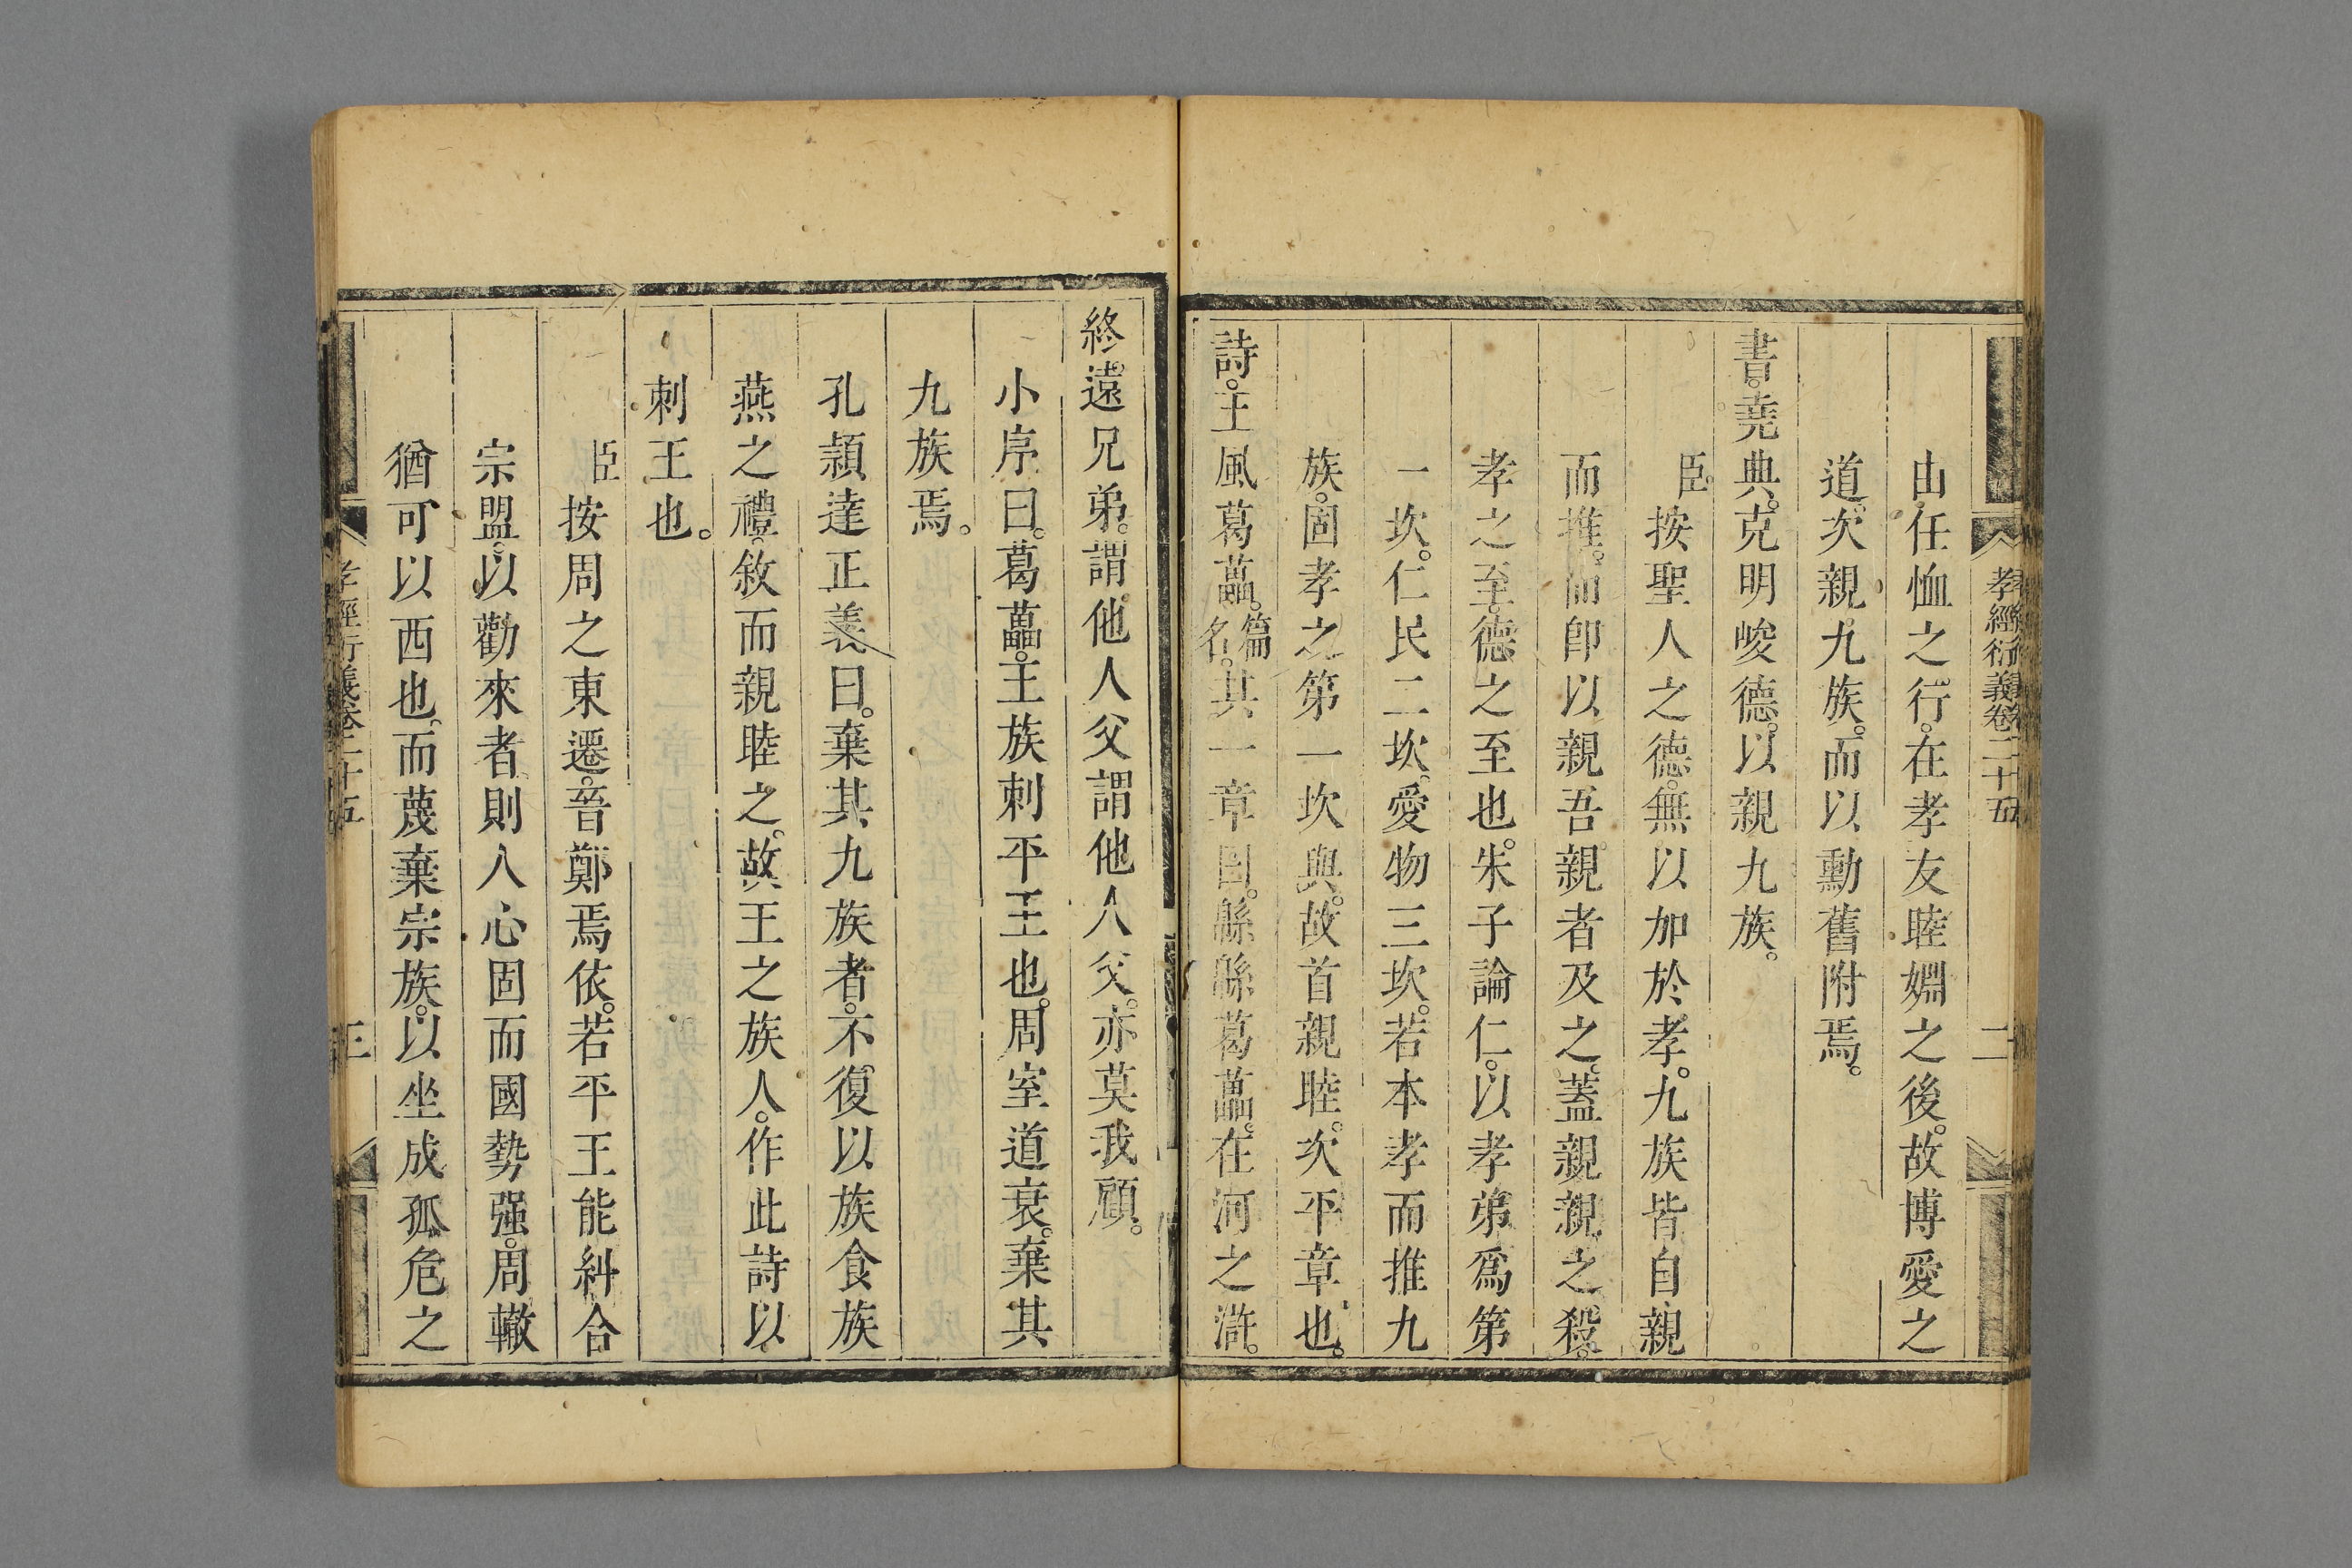 孝經衍義卷二十五
二
由任恤之行。在孝友睦婣之後。故博愛之
道。次親九族。而以勳舊附焉。
書。堯典。克明峻德。以親九族。
臣按聖人之德。無以加於孝。九族皆自親
而推。而卽以親吾親者及之。蓋親親之殺。
孝之至。德之至也。朱子論仁。以孝弟爲第
一坎。仁民二坎。愛物三坎。若本孝而推九
族。固孝之第一坎與。故首親睦。次平章也。
詩。王風葛藟。篇名。其一章曰。緜緜葛藟。在河之滸。
終遠兄弟。謂他人父。謂他人父。亦莫我顧。
小序曰。葛藟。王族刺平王也。周室道衰。棄其
九族焉。
孔穎達正義曰。棄其九族者。不復以族食族
燕之禮。敘而親睦之。故王之族人。作此詩以
刺王也。
臣按周之東遷。晉鄭焉依。若平王能糾合
宗盟。以勸來者。則人心固而國勢强。周轍
猶可以西也。而蔑棄宗族。以坐成孤危之
孝經衍義卷二十五
三